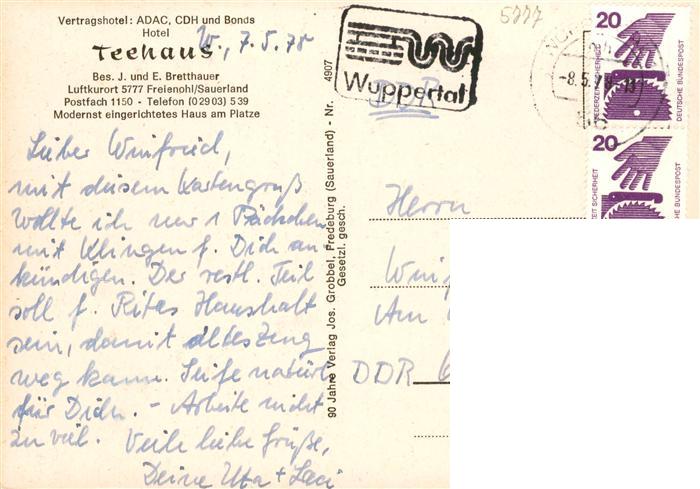 Vertragshotel: ADAC, CDH und Bonds
Hotel
Teehaus
Bes. J. und E. Bretthauer
Luftkurort 5777 Freienohl/Sauerland
Postfach 1150 - Telefon (02903) 539
Modernst eingerichtetes Haus am Platze
W., 7.5.78
Lieber Winfried,
mit diesem Kartengruß
wollte ich nur 1 Päckchen
mit Klingen f. Dich an-
kündigen. Der restl. Teil
soll f. Rites Haushalt
sein, damit altes Zeug
weg kann. Seife natürl.
für Dich. - Arbeite nicht
zu viel. Viele liebe Grüße,
Deine Uta +
90 Jahre Verlag Jos. Grobbel, Fredeburg (Sauerland) - Nr. 4907
Gesetzl. gesch.
5777
Wuppertal
DDR
-8.5.
20
JEDERZEIT SICHERHEIT
DEUTSCHE BUNDESPOST
20
ZEIT SICHERHEIT
DEUTSCHE BUNDESPOST
Herrn
Winf
Am
DDR 6